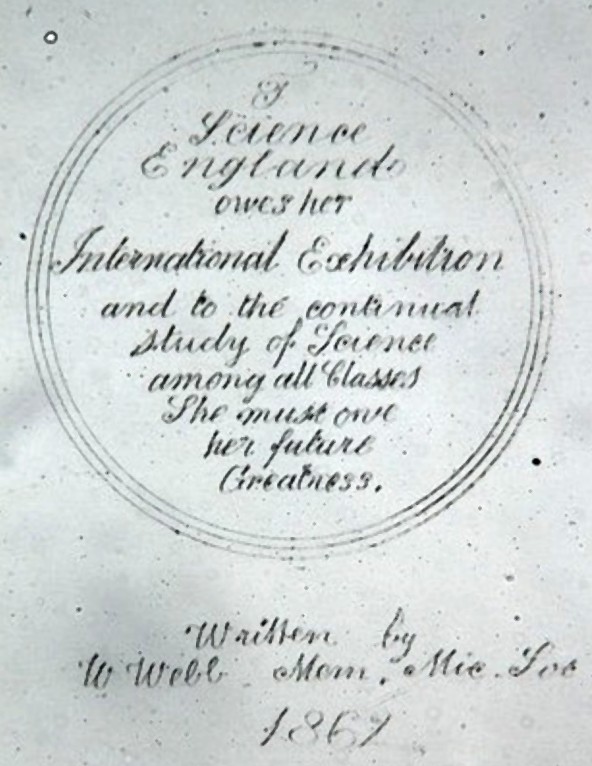 To
Science
England
owes her
International Exhibition
and to the continual
study of Science
among all Classes
She must owe
her future
Greatness.
Written by
W Webb Mem. Mic. Soc
1862